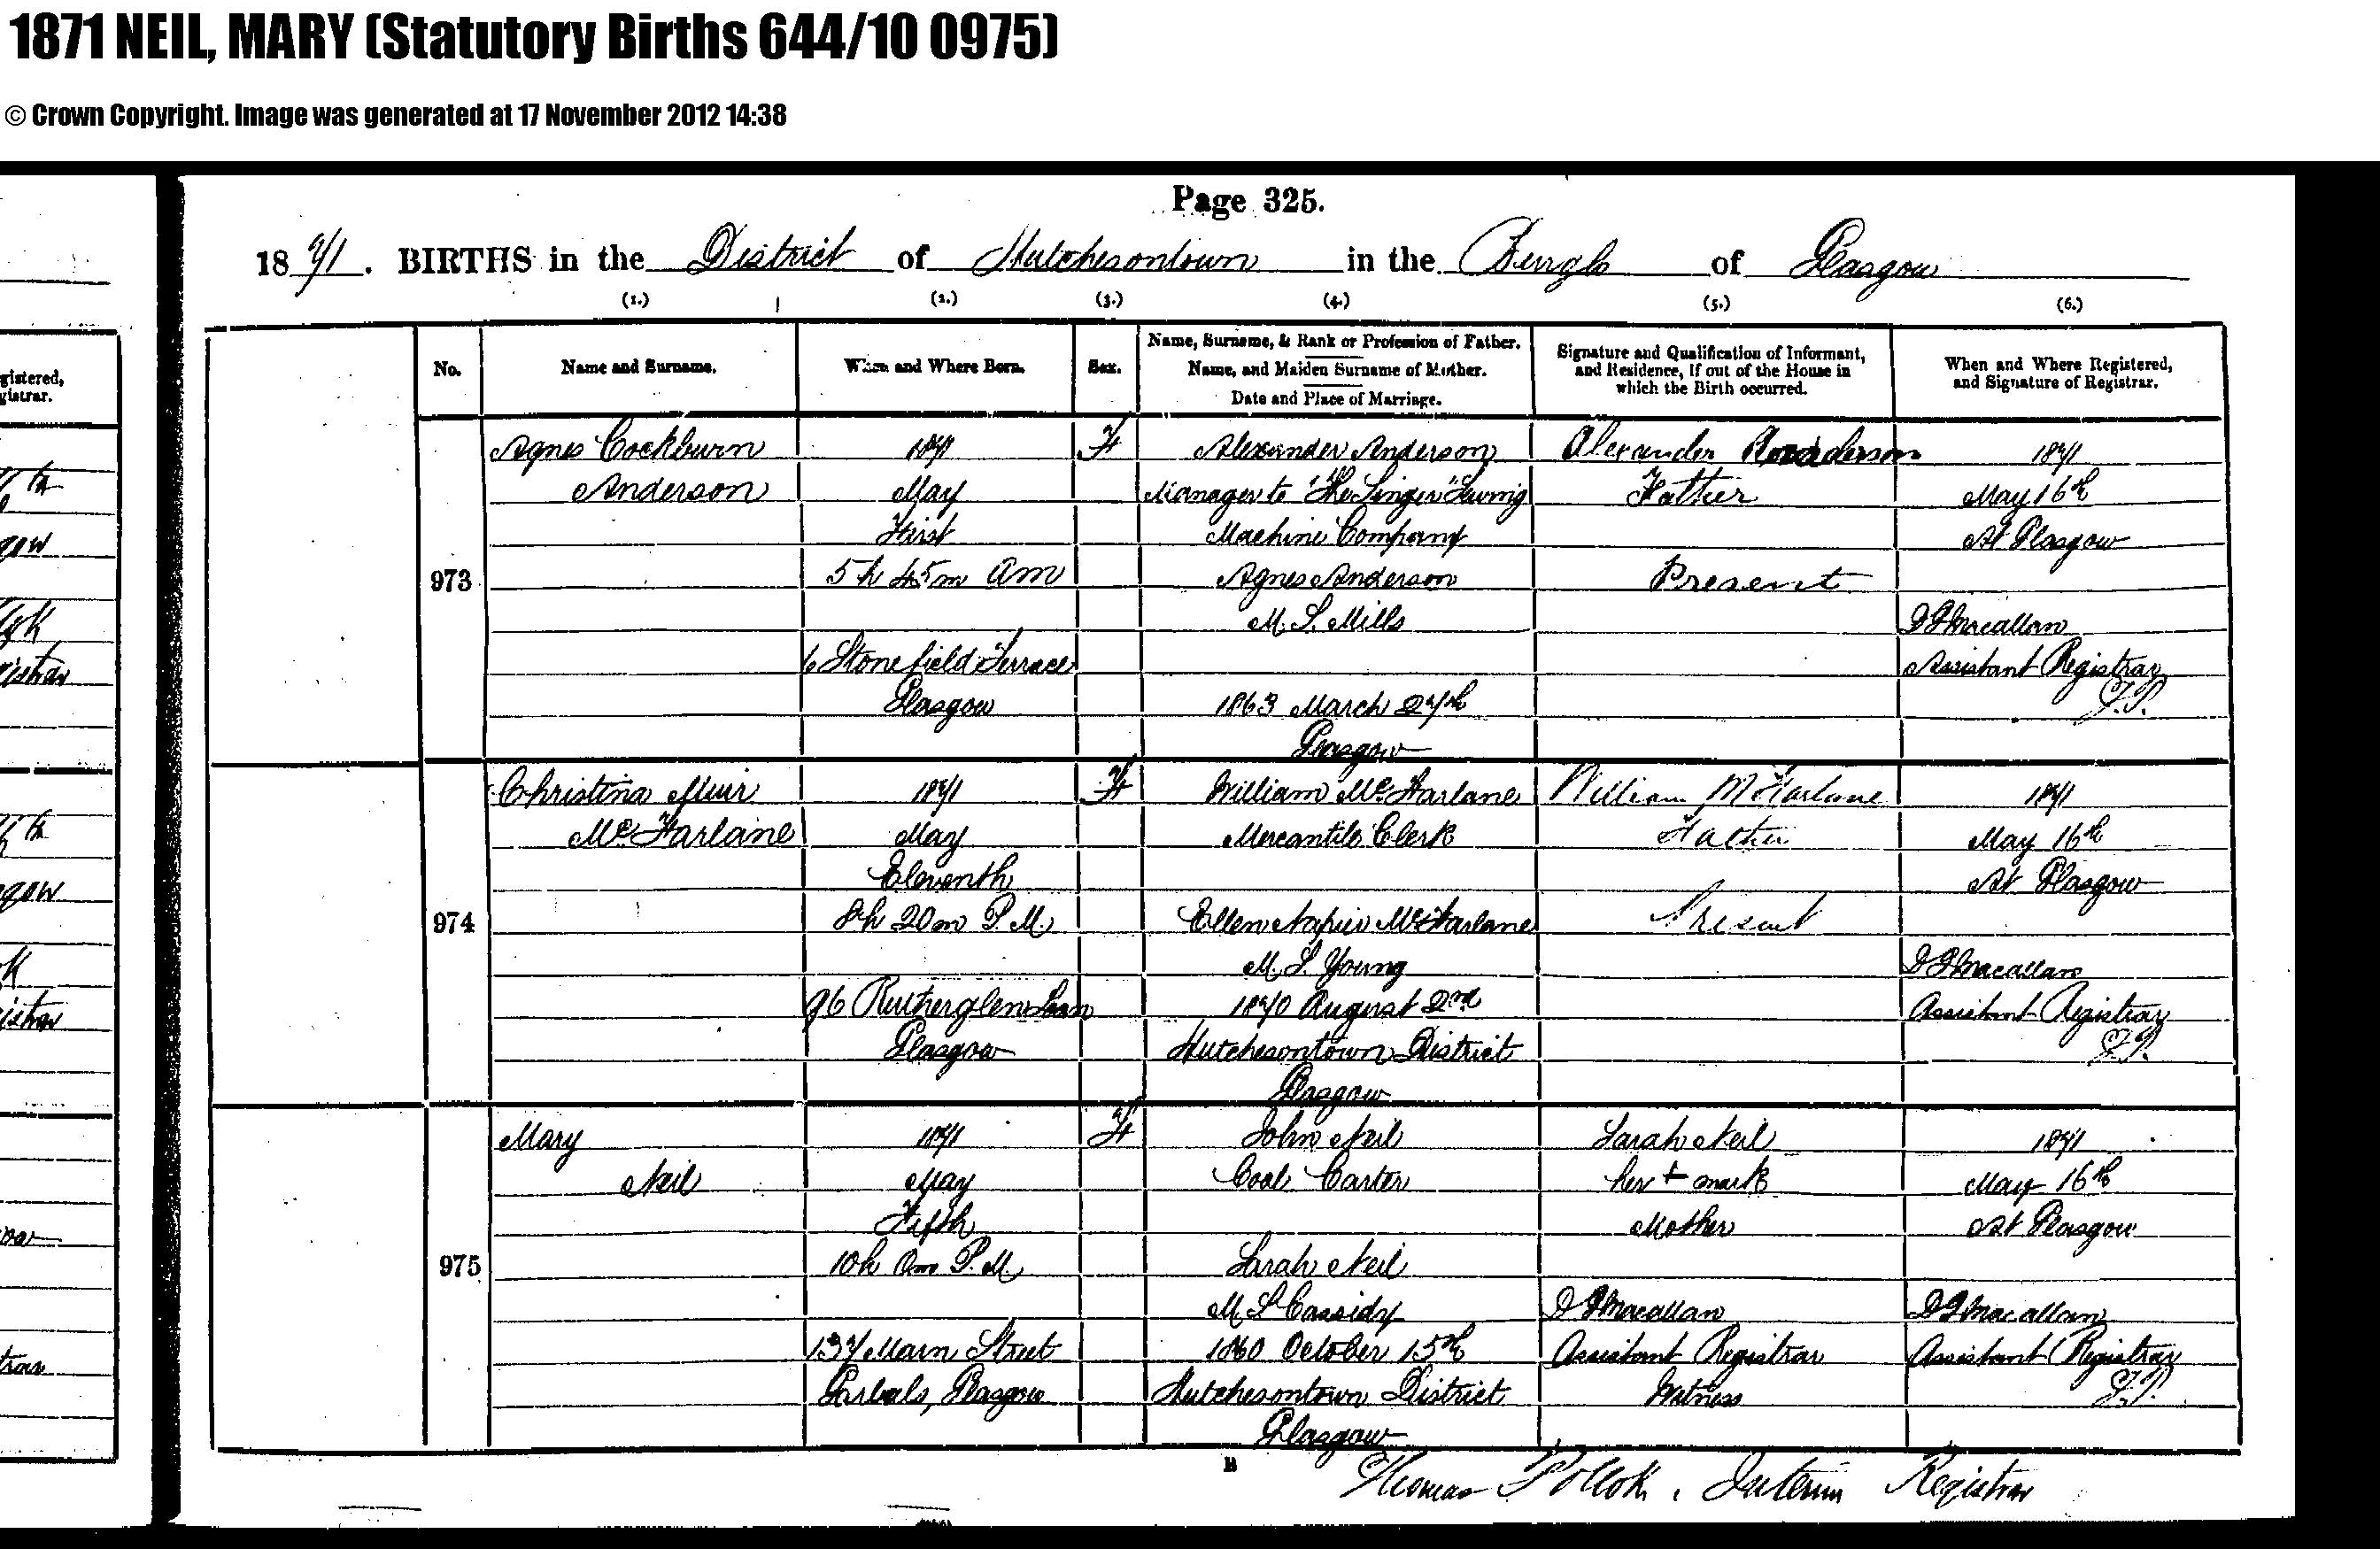 1871 NEIL, MARY (Statutory Births 644/10 0975)
© Crown Copyright. Image was generated at 17 November 2012 14:38
Page 325.
1871. BIRTHS in the District of Hutchesontown in the Burgh of Glasgow
(1.) (2.) (3.) (4.) (5.) (6.)
No.
Name and Surname.
When and Where Born.
Sex.
Name, Surname, & Rank or Profession of Father.
Name, and Maiden Surname of Mother.
Date and Place of Marriage.
Signature and Qualification of Informant,
and Residence, if out of the House in
which the Birth occurred.
When and Where Registered,
and Signature of Registrar.
gistered,
gistrar.
973
Agnes Cockburn
Anderson
1871
May
First
5 h 45 m AM
6 Stonefield Terrace
Glasgow
F
Alexander Anderson
Manager to "The Singer" Sewing
Machine Company
Agnes Anderson
M.S. Mills
1863 March 27th
Glasgow
Alexander Anderson
Father
Present
1871
May 16th
At Glasgow
Macallan
Assistant Registrar
974
Christina Muir
McFarlane
1871
May
Eleventh
8h 20m P.M.
96 Rutherglen Loan
Glasgow
F
William McFarlane
Mercantile Clerk
Ellen Napier McFarlane
M.S. Young
1870 August 2nd
Hutchesontown District
Glasgow
William McFarlane
Father
Present
1871
May 16th
At Glasgow
Macallan
Assistant Registrar
975
Mary
Neil
1871
May
Fifth
10h 0m P.M.
137 Main Street
Gorbals, Glasgow
F
John Neil
Coal Carter
Sarah Neil
M S Cassidy
1860 October 15th
Hutchesontown District
Glasgow
Sarah Neil
her + mark
Mother
Macallan
Assistant Registrar
Witness
1871
May 16th
At Glasgow
Macallan
Assistant Registrar
B
Thomas Pollok, Interim Registrar